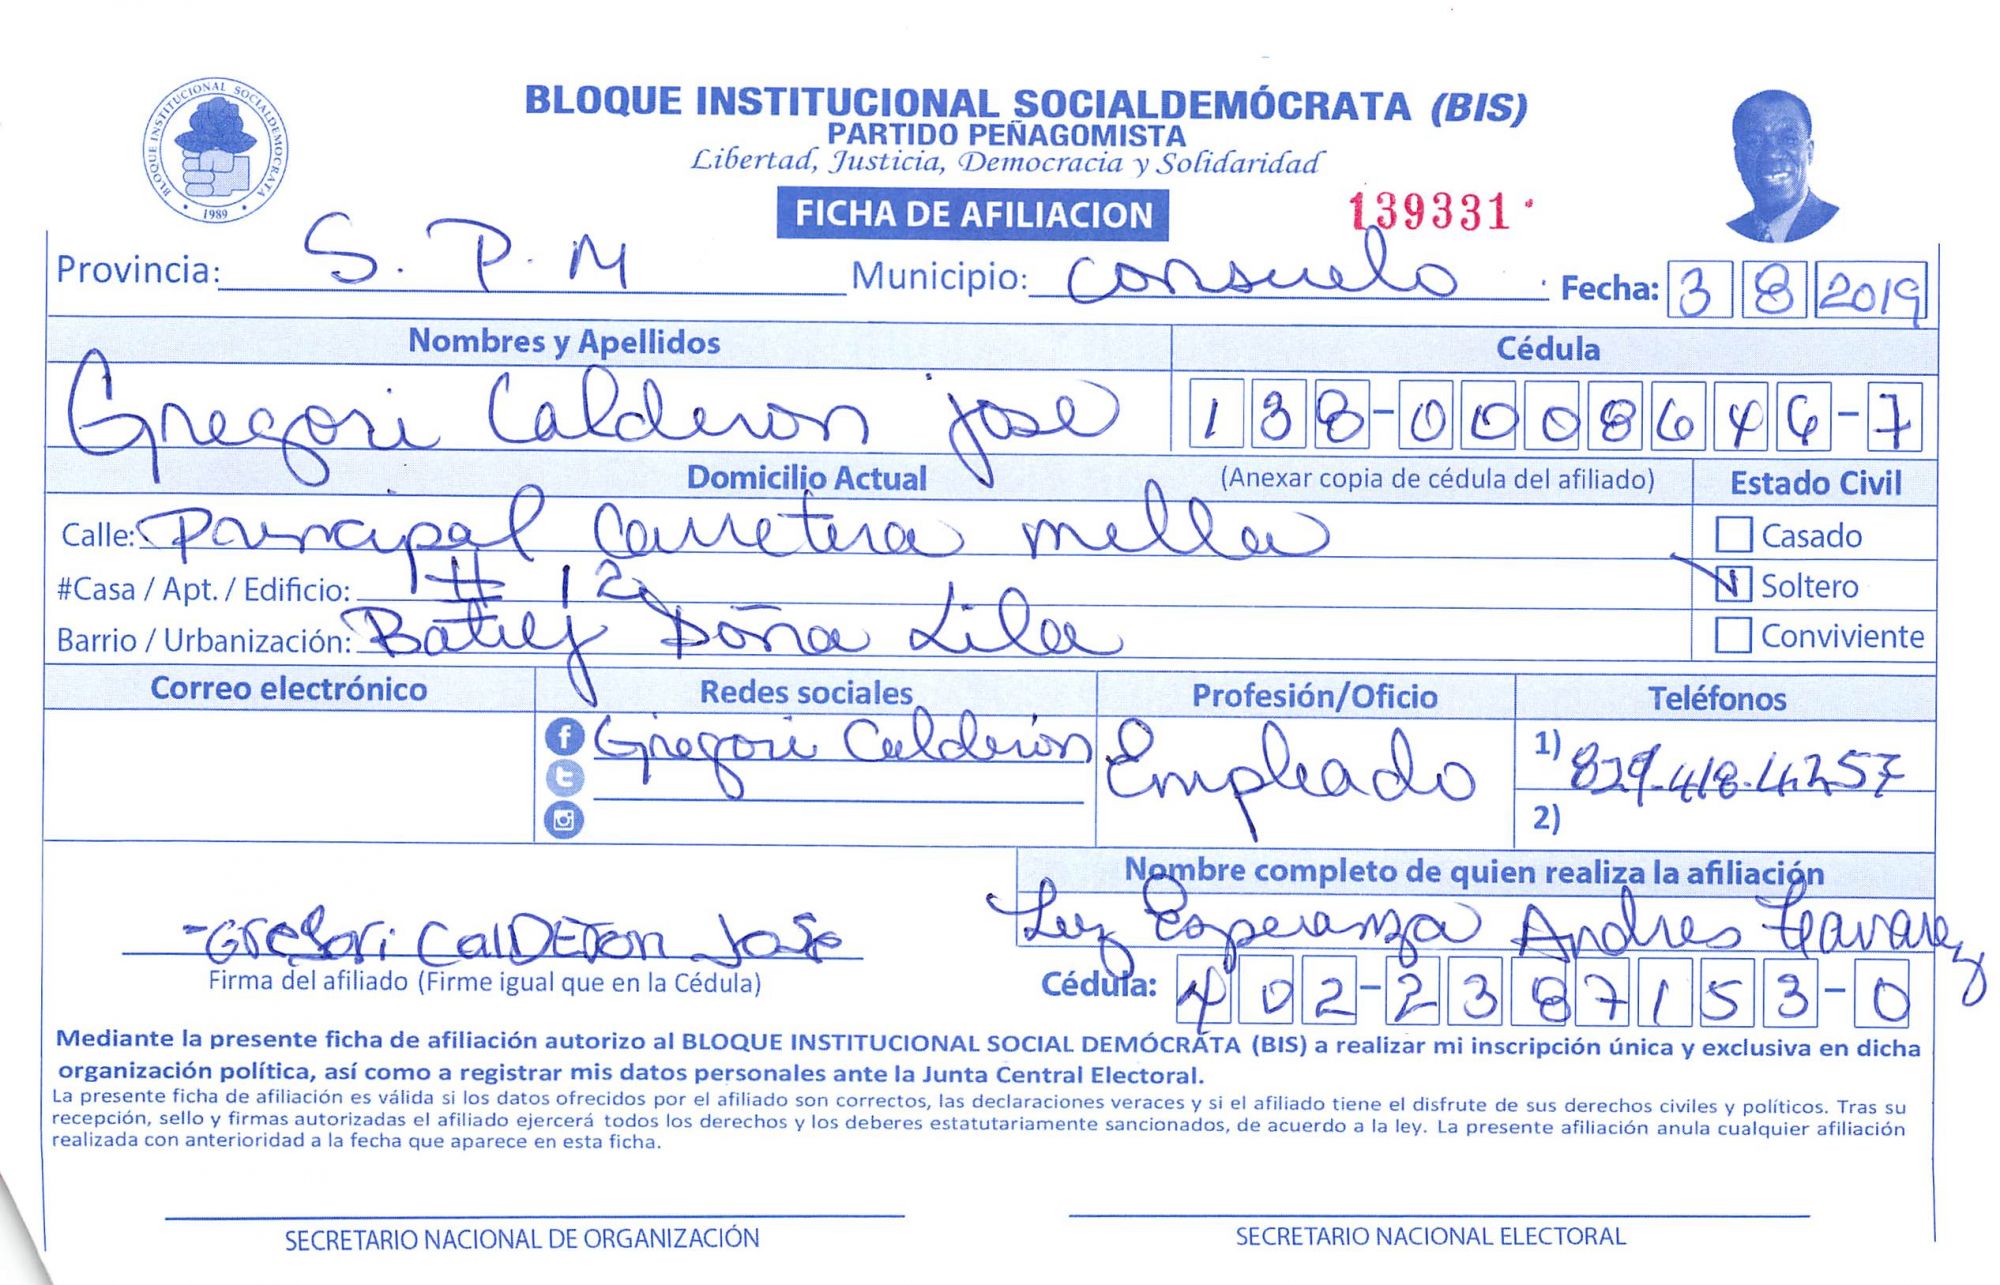 BLOQUE INSTITUCIONAL SOCIALDEMOCRATA
1989
BLOQUE INSTITUCIONAL SOCIALDEMÓCRATA (BIS)
PARTIDO PEÑAGOMISTA
Libertad, Justicia, Democracia y Solidaridad
FICHA DE AFILIACION
139331
Provincia: S. P. M Municipio: Consuelo Fecha: 3 8 2019
Nombres y Apellidos Cédula
Gregori Calderon jose 138-0008646-7
Domicilio Actual (Anexar copia de cédula del afiliado) Estado Civil
Calle: Principal Carretera mella Casado
#Casa / Apt. / Edificio: # 12 Soltero
Barrio / Urbanización: Batey Doña Lila Conviviente
Correo electrónico Redes sociales Profesión/Oficio Teléfonos
Gregori Calderón Empleado 1) 829-418-4257
2)
Nombre completo de quien realiza la afiliación
-GREGori CalDERon JoSe Luz Esperanza Andres tavarez
Firma del afiliado (Firme igual que en la Cédula) Cédula: 402-2387153-0
Mediante la presente ficha de afiliación autorizo al BLOQUE INSTITUCIONAL SOCIAL DEMÓCRATA (BIS) a realizar mi inscripción única y exclusiva en dicha
organización política, así como a registrar mis datos personales ante la Junta Central Electoral.
La presente ficha de afiliación es válida si los datos ofrecidos por el afiliado son correctos, las declaraciones veraces y si el afiliado tiene el disfrute de sus derechos civiles y políticos. Tras su
recepción, sello y firmas autorizadas el afiliado ejercerá todos los derechos y los deberes estatutariamente sancionados, de acuerdo a la ley. La presente afiliación anula cualquier afiliación
realizada con anterioridad a la fecha que aparece en esta ficha.
SECRETARIO NACIONAL DE ORGANIZACIÓN SECRETARIO NACIONAL ELECTORAL